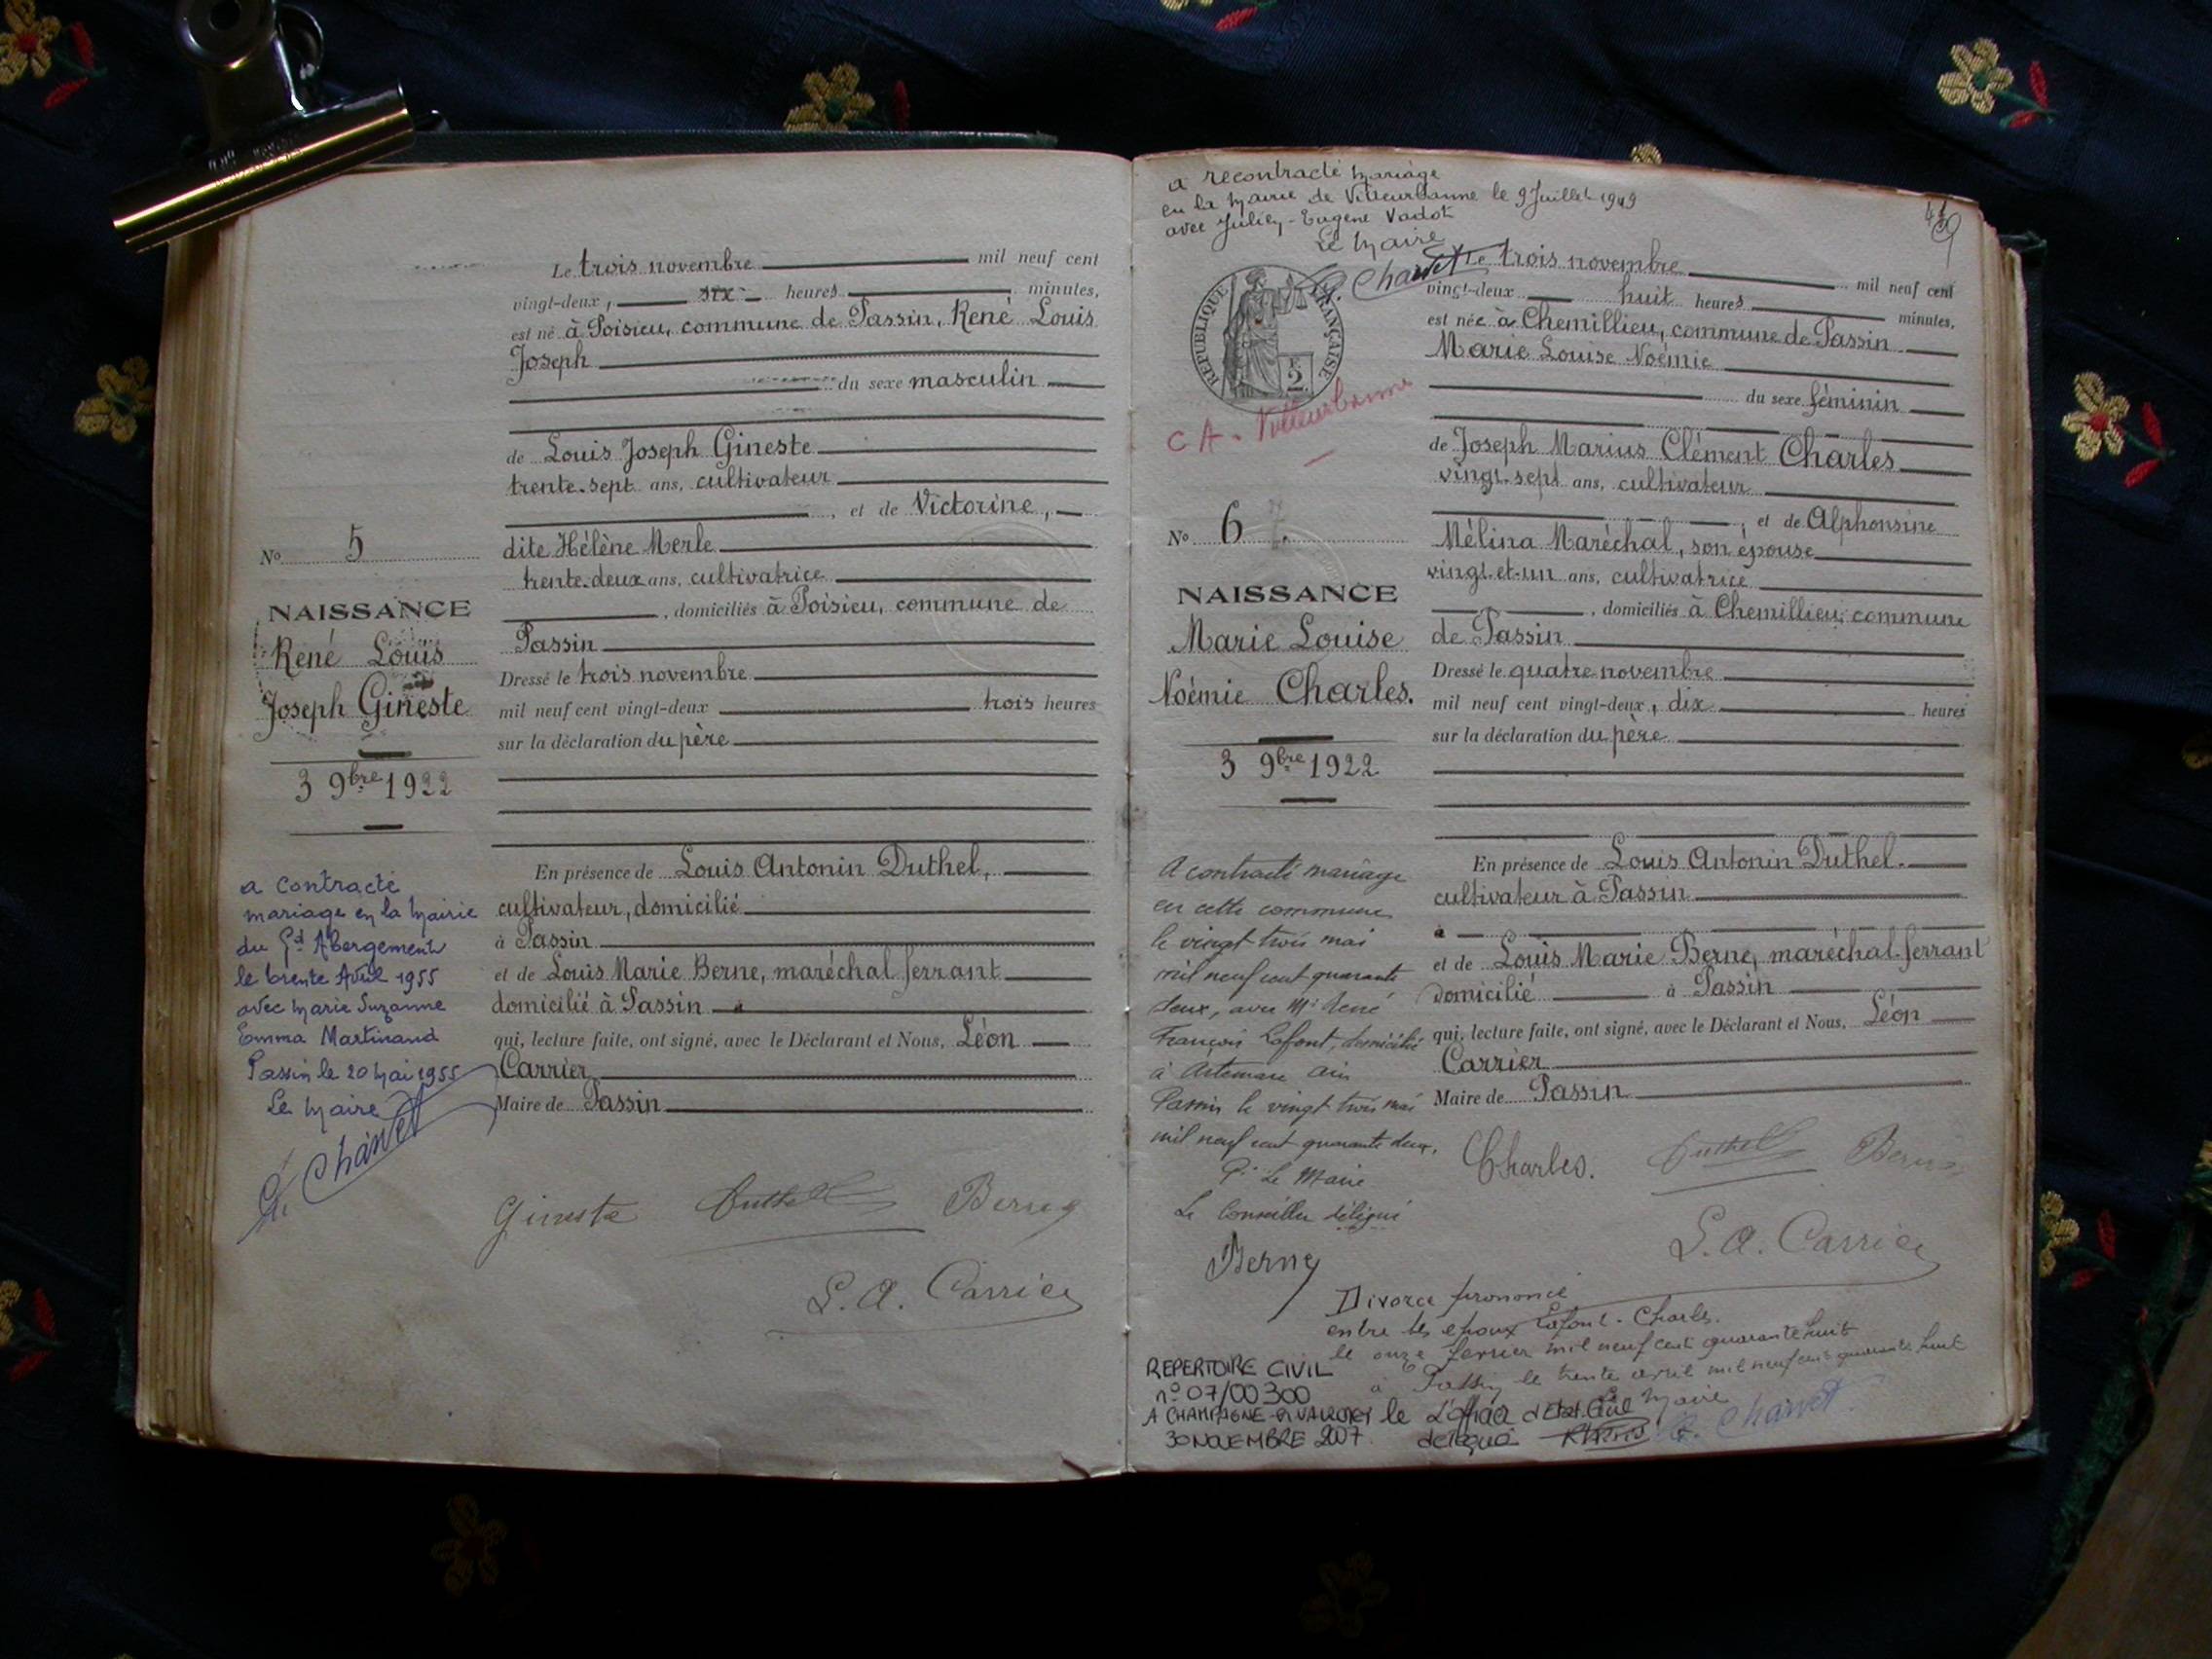 Le trois novembre mil neuf cent
vingt-deux, six heures minutes,
est né à Poisieu, commune de Passin, René Louis
Joseph
du sexe masculin
de Louis Joseph Gineste
trente-sept ans, cultivateur
, et de Victorine,
dite Hélène Merle
trente-deux ans, cultivatrice
, domiciliés à Poisieu, commune de
Passin
Dressé le trois novembre
mil neuf cent vingt-deux trois heures
sur la déclaration du père
En présence de Louis Antonin Duthel,
cultivateur, domicilié
à Passin
et de Louis Marie Berne, maréchal ferrant
domicilié à Passin
qui, lecture faite, ont signé, avec le Déclarant et Nous, Léon
Carrier
Maire de Passin
Gineste Duthel Berne
L. A. Carrier
No 5
NAISSANCE
René Louis
Joseph Gineste
3 9bre 1922
a contracté
mariage en la Mairie
du Gd Abergement
le trente Avril 1955
avec Marie Suzanne
Emma Martinand
Passin le 20 Mai 1955
Le Maire
G. Charvet
a recontracté mariage
en la Mairie de Villeurbanne le 9 Juillet 1949
avec Julien-Eugène Vadot
Le Maire
G. Charvet
REPUBLIQUE FRANÇAISE
2
C A. Villeurbanne
Le trois novembre mil neuf cent
vingt-deux huit heures minutes,
est née à Chemillieu, commune de Passin
Marie Louise Noémie
du sexe féminin
de Joseph Marius Clément Charles
vingt-sept ans, cultivateur
, et de Alphonsine
Mélina Maréchal, son épouse
vingt-et-un ans, cultivatrice
, domiciliés à Chemillieu, commune
de Passin
Dressé le quatre novembre
mil neuf cent vingt-deux, dix heures
sur la déclaration du père
En présence de Louis Antonin Duthel.
cultivateur à Passin
à
et de Louis Marie Berne, maréchal-ferrant
domicilié à Passin
qui, lecture faite, ont signé, avec le Déclarant et Nous, Léon
Carrier
Maire de Passin
Charles. Duthel Berne
L. A. Carrier
No 6
NAISSANCE
Marie Louise
Noémie Charles.
3 9bre 1922
A contracté mariage
en cette commune
le vingt trois mai
mil neuf cent quarante
deux, avec Mr René
François Lafont, domicilié
à Artemare Ain
Passin le vingt trois mai
mil neuf cent quarante deux.
Pr Le Maire
Le Conseiller délégué
Berne
Divorce prononcé
entre les époux Lafont-Charles.
le onze fevrier mil neuf cent quarante huit
à Passin le trente avril mil neuf cent quarante huit
Le Maire
G. Charvet
REPERTOIRE CIVIL
n° 07/00300
A CHAMPAGNE-EN-VALROMEY le
30 NOVEMBRE 2007
L'officier d'Etat Civil
délégué